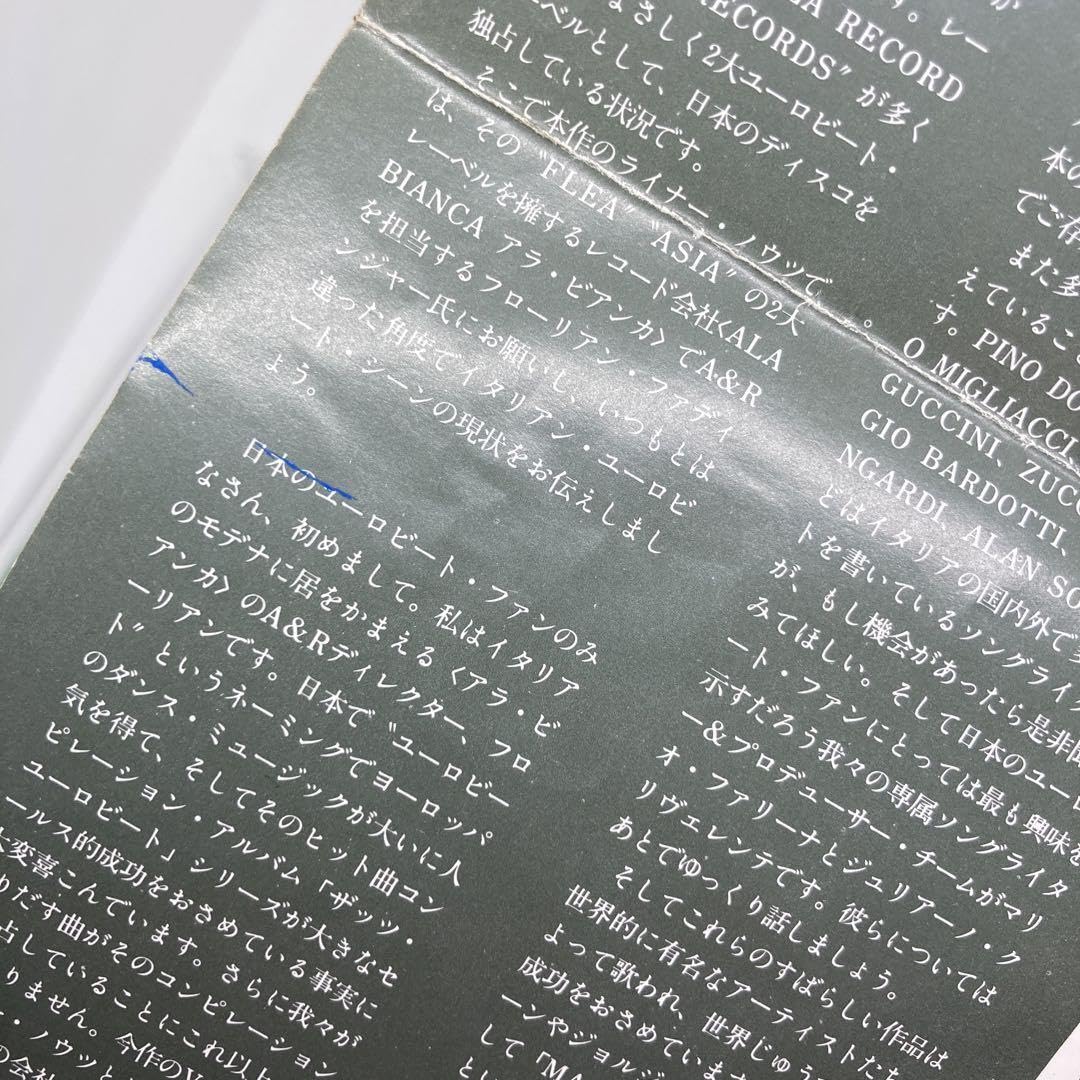 が
す。レー
EA RECORD
RECORDS〟が多く
なさしく2大ユーロビート・
ーベルとして、日本のディスコを
独占している状況です。
そこで本作のライナー・ノウツで
は、その〝FLEA〟〝ASIA〟の2大
レーベルを擁するレコード会社〈ALA
BIANCA アラ・ビアンカ〉でA&R
を担当するフローリアン・ファディ
ンジャー氏にお願いし、いつもとは
違った角度でイタリアン・ユーロビ
ート・シーンの現状をお伝えしまし
ょう。
日本のユーロビート・ファンのみ
なさん、初めまして。私はイタリア
のモデナに居をかまえる〈アラ・ビ
アンカ〉のA&Rディレクター、フロ
ーリアンです。日本で〝ユーロビー
ト〟というネーミングでヨーロッパ
のダンス・ミュージックが大いに人
気を得て、そしてそのヒット曲コン
ピレーション・アルバム「ザッツ・
ユーロビート」シリーズが大きなセ
ールス的成功をおさめている事実に
変喜こんでいます。さらに我々が
りだす曲がそのコンピレーション
占していることにこれ以上
りません。今作のV
・ノウツと
の会社
本の
でご存
また多
えているこ
す。PINO DO
O MIGLIACCI、
GUCCINI、ZUCC
GIO BARDOTTI、
NGARDI、ALAN SO
とはイタリアの国内外で
トを書いているソングライ
が、もし機会があったら是非
みてほしい。そして日本のユーロ
ート・ファンにとっては最も興味を
示すだろう我々の専属ソングライタ
ー&プロデューサー・チームがマリ
オ・ファリーナとジュリアーノ・ク
リヴェレンテです。彼らについては
あとでゆっくり話しましょう。
そしてこれらのすばらしい作品は
世界的に有名なアーティストたち
よって歌われ、世界じゅう
成功をおさめています
ーンやジョルジ
して「MA
とい